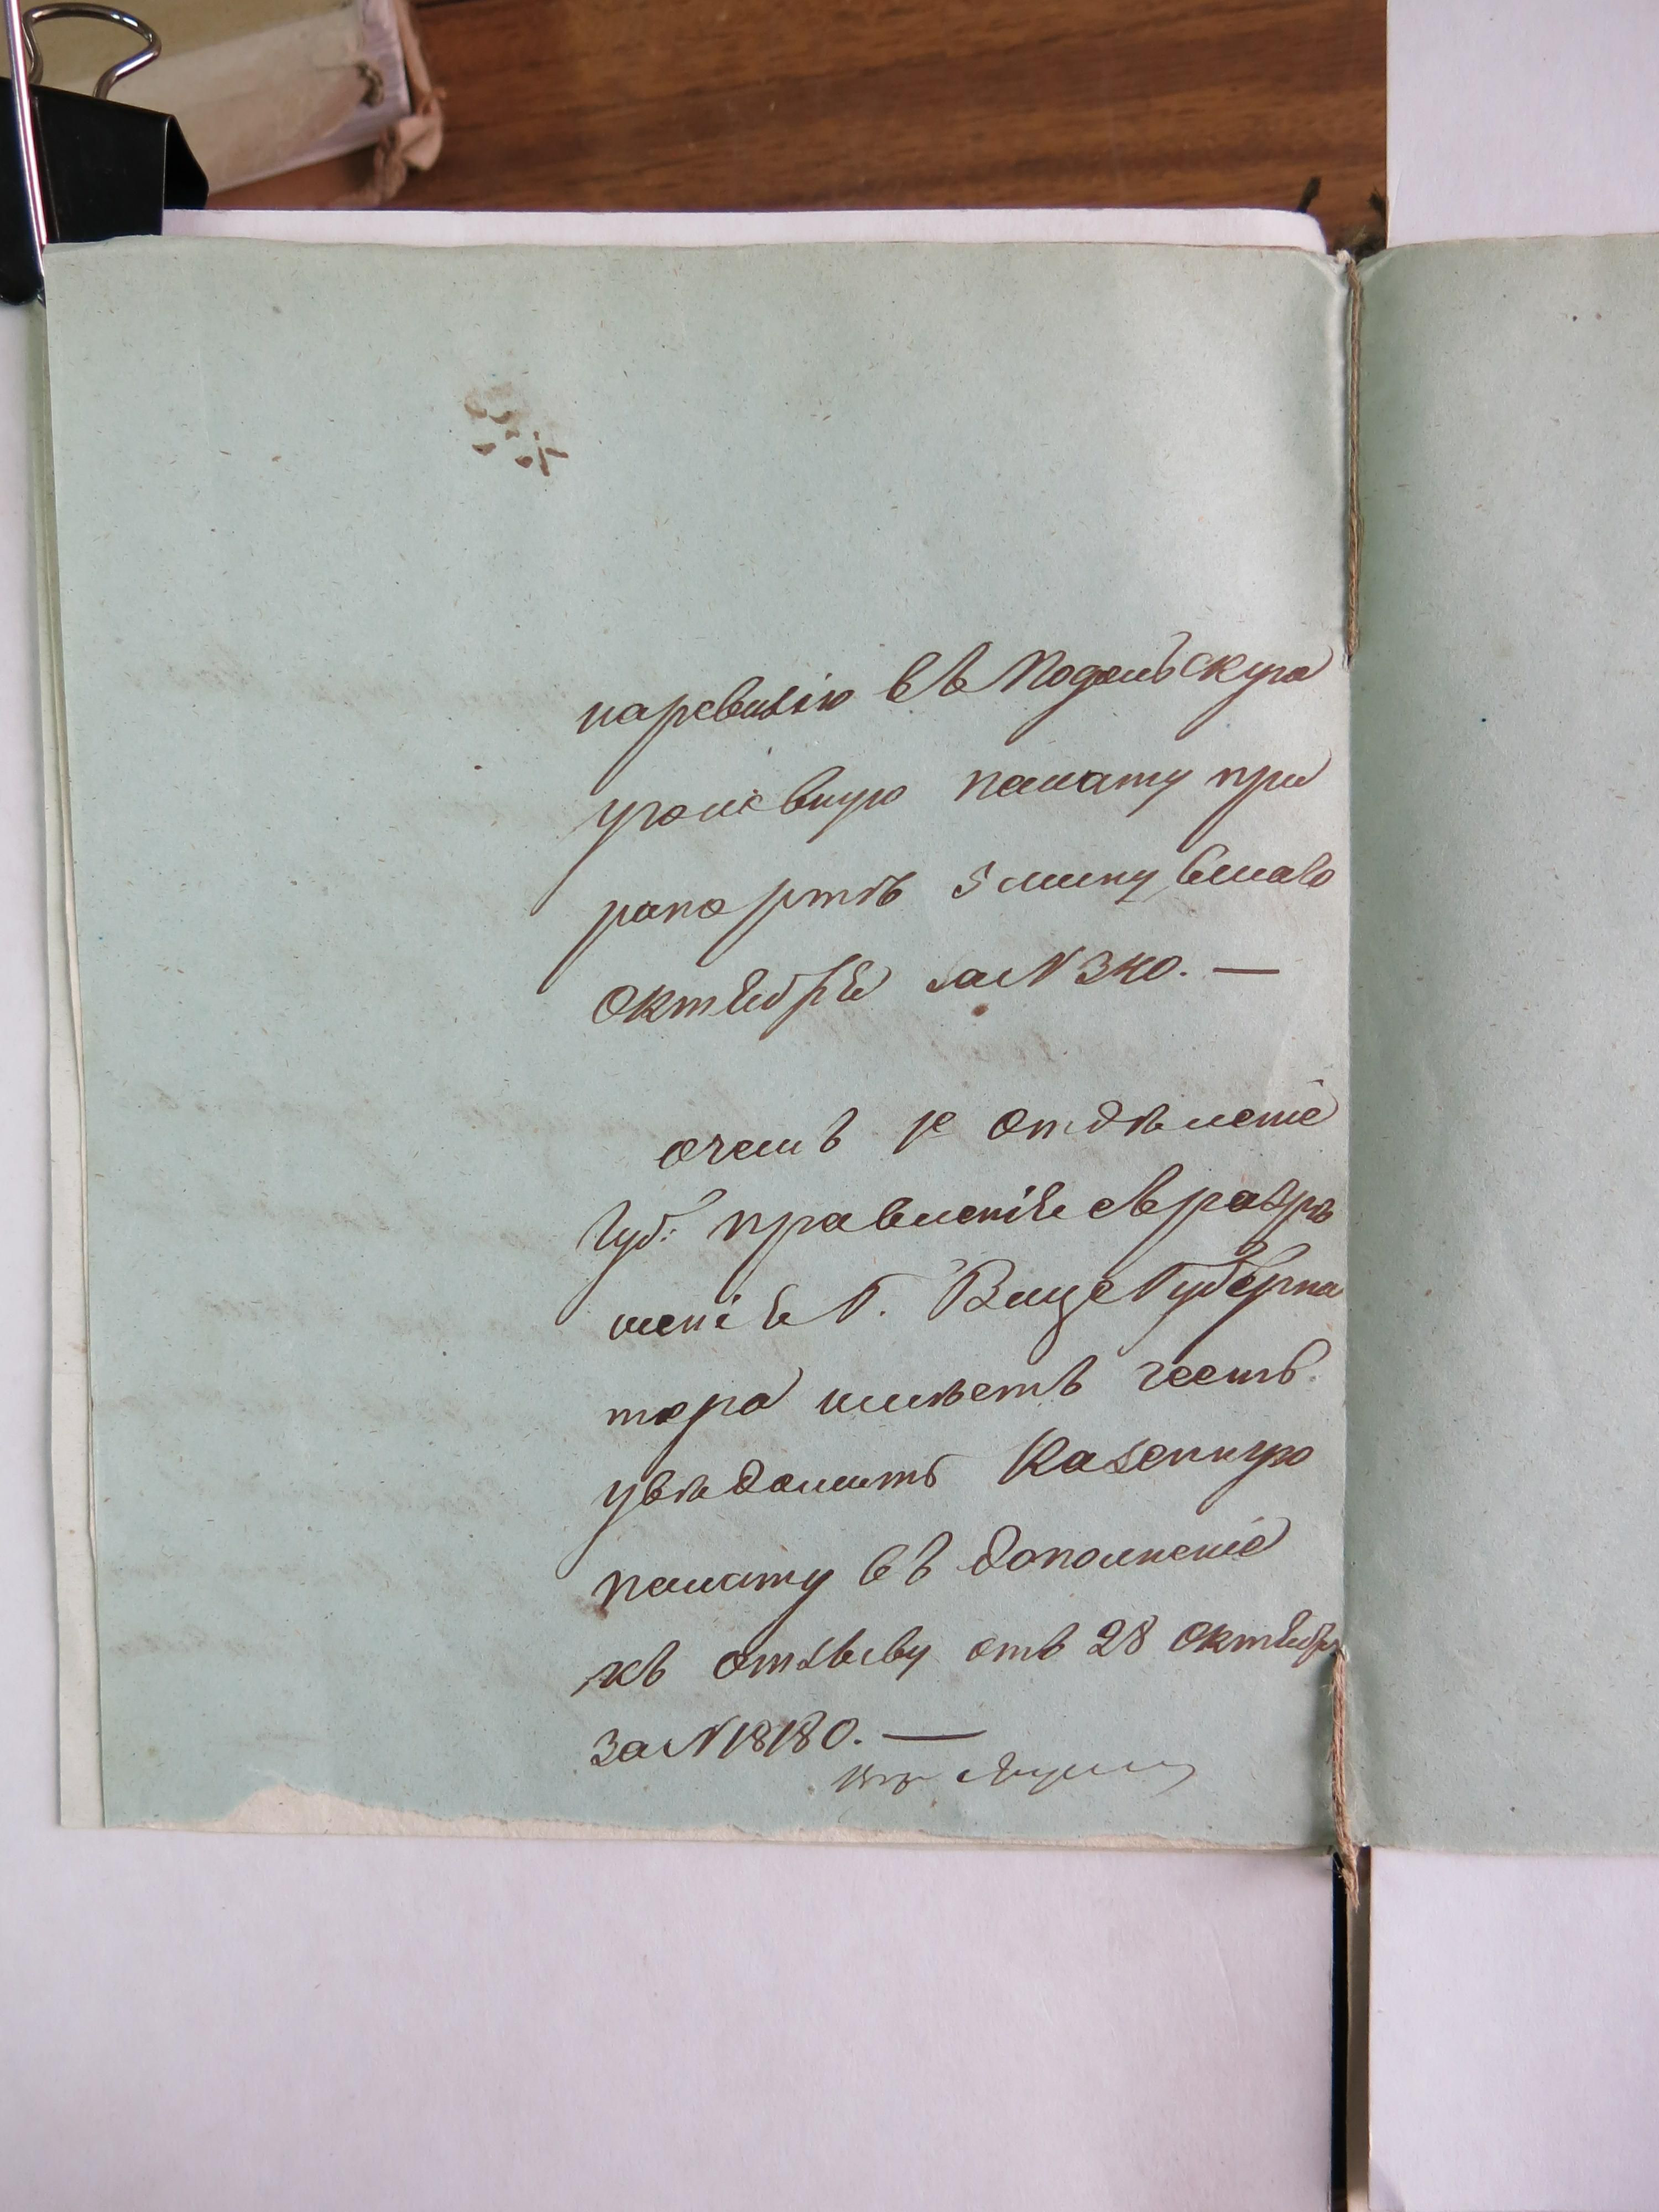 на ревизію въ Подольскую
уголовную палату при
рапортѣ 5 минувшаго
Октября за N 340. —
о чемъ 1е отдѣленіе
Губ: правленія съ разрѣ
шенія Г. Вице Губерна
тора имѣетъ честь
увѣдомить Казенную
палату въ дополненіе
къ отзыву отъ 28 Октября
за N 18180. —